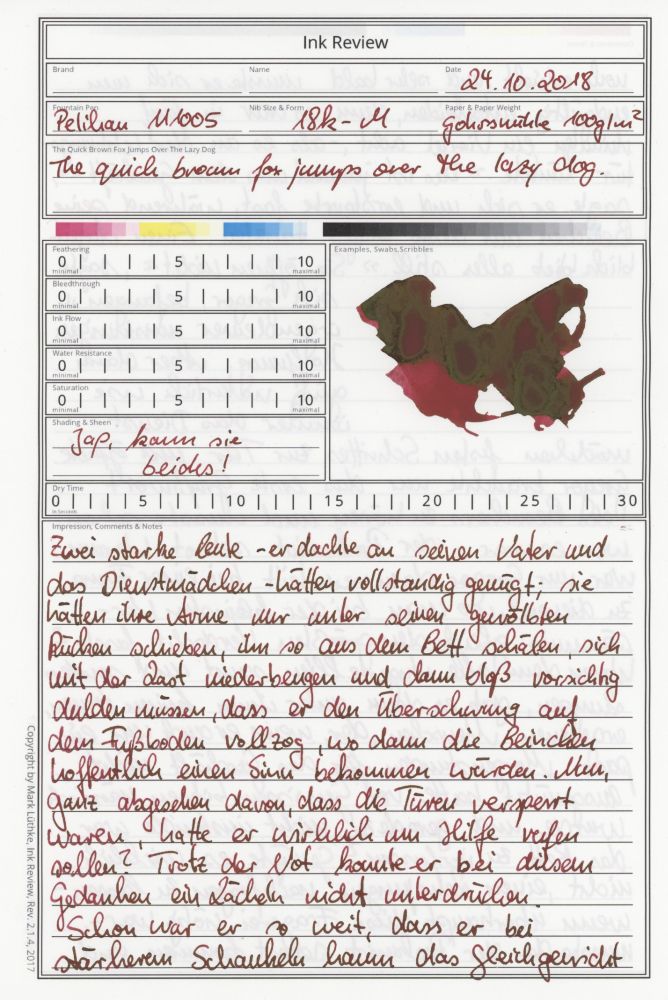 Ink Review
Brand Name Date 24.10.2018
Fountain Pen Pelikan M1005 Nib Size & Form 18k-M Paper & Paper Weight Gohrsmühle 100g/m²
The Quick Brown Fox Jumps Over The Lazy Dog
The quick brown fox jumps over the lazy dog.
Feathering
0 5 10
minimal maximal
Bleedthrough
0 5 10
minimal maximal
Ink Flow
0 5 10
minimal maximal
Water Resistance
0 5 10
minimal maximal
Saturation
0 5 10
minimal maximal
Shading & Sheen
Jap, kann sie
beides!
Examples, Swabs, Scribbles
Dry Time
0 5 10 15 20 25 30
in Seconds
Impression, Comments & Notes
Zwei starke Leute - er dachte an seinen Vater und
das Dienstmädchen - hätten vollständig genügt; sie
hätten ihre Arme nur unter seinen gewölbten
Rücken schieben, ihn so aus dem Bett schälen, sich
mit der Last niederbeugen und dann bloß vorsichtig
dulden müssen, dass er den Überschwung auf
dem Fußboden vollzog, wo dann die Beinchen
hoffentlich einen Sinn bekommen würden. Nun,
ganz abgesehen davon, dass die Türen versperrt
waren, hätte er wirklich um Hilfe rufen
sollen? Trotz der Not konnte er bei diesem
Gedanken ein Lächeln nicht unterdrücken.
Schon war er so weit, dass er bei
stärkerem Schaukeln kaum das Gleichgewicht
Copyright by Mark Lüthke, Ink Review, Rev. 2.1.4, 2017